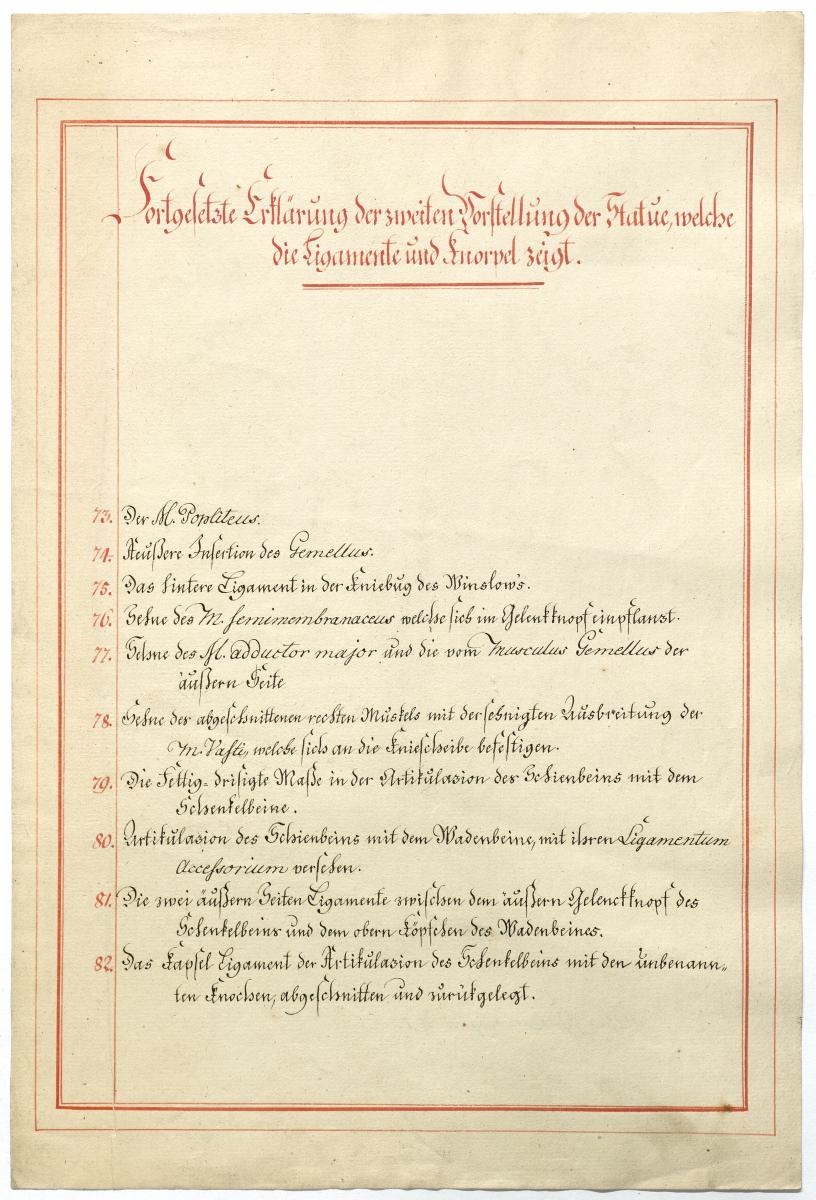 Fortgesetzte Erklärung der zweiten Vorstellung der Statue, welche
die Ligamente und Knorpel zeigt.
73. Der M. Popliteus.
74. Aeußere Insertion des Gemellus.
75. Das hintere Ligament in der Kniebug des Winslow's.
76. Sehne des M. semimembranaceus welche sich im Gelenkknopf einpflanzt.
77. Sehne des M. adductor major und die vom Musculus Gemellus der
äußern Seite
78. Sehne der abgeschnittenen rechten Muskels mit der sehnigten Ausbreitung der
M. Vasti, welche sich an die Kniescheibe befestigen.
79. Die Fettig=drisigte Maße in der Artikulazion des Schienbeins mit dem
Schenkelbeine.
80. Artikulazion des Schienbeins mit dem Wadenbeine, mit ihren Ligamentum
Accessorium versehen.
81. Die zwei äußern Seiten Ligamente zwischen dem äußern Gelenckknopf des
Schenkelbeins und dem obern Köpfchen des Wadenbeines.
82. Das Kapsel Ligament der Artikulazion des Schenkelbeins mit den unbenann„
ten Knochen, abgeschnitten und zurükgelegt.